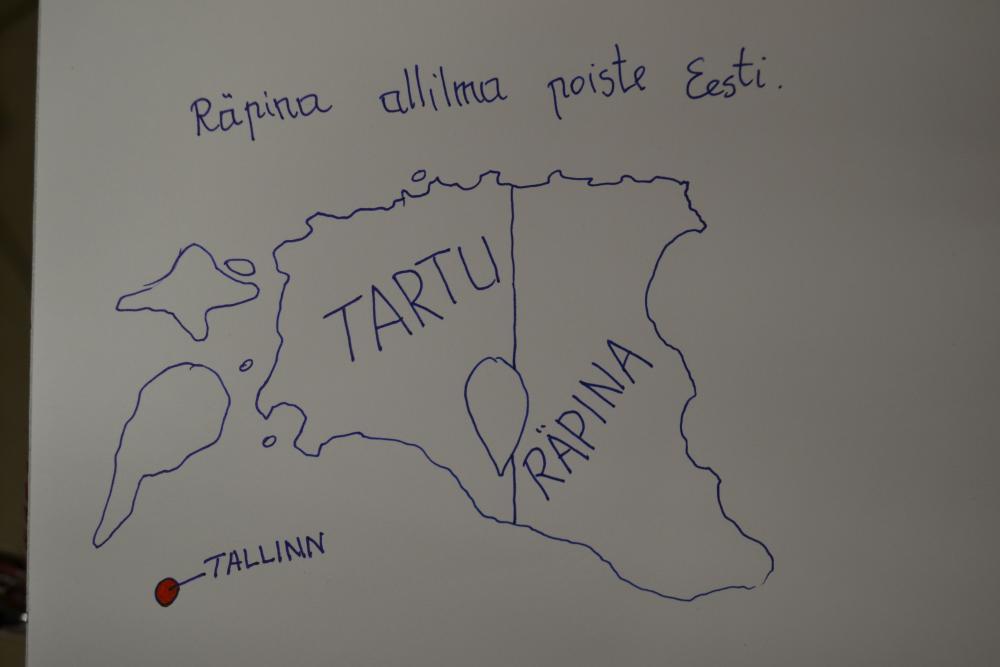 Räpina allilma poiste Eesti.
TARTU
RÄPINA
TALLINN